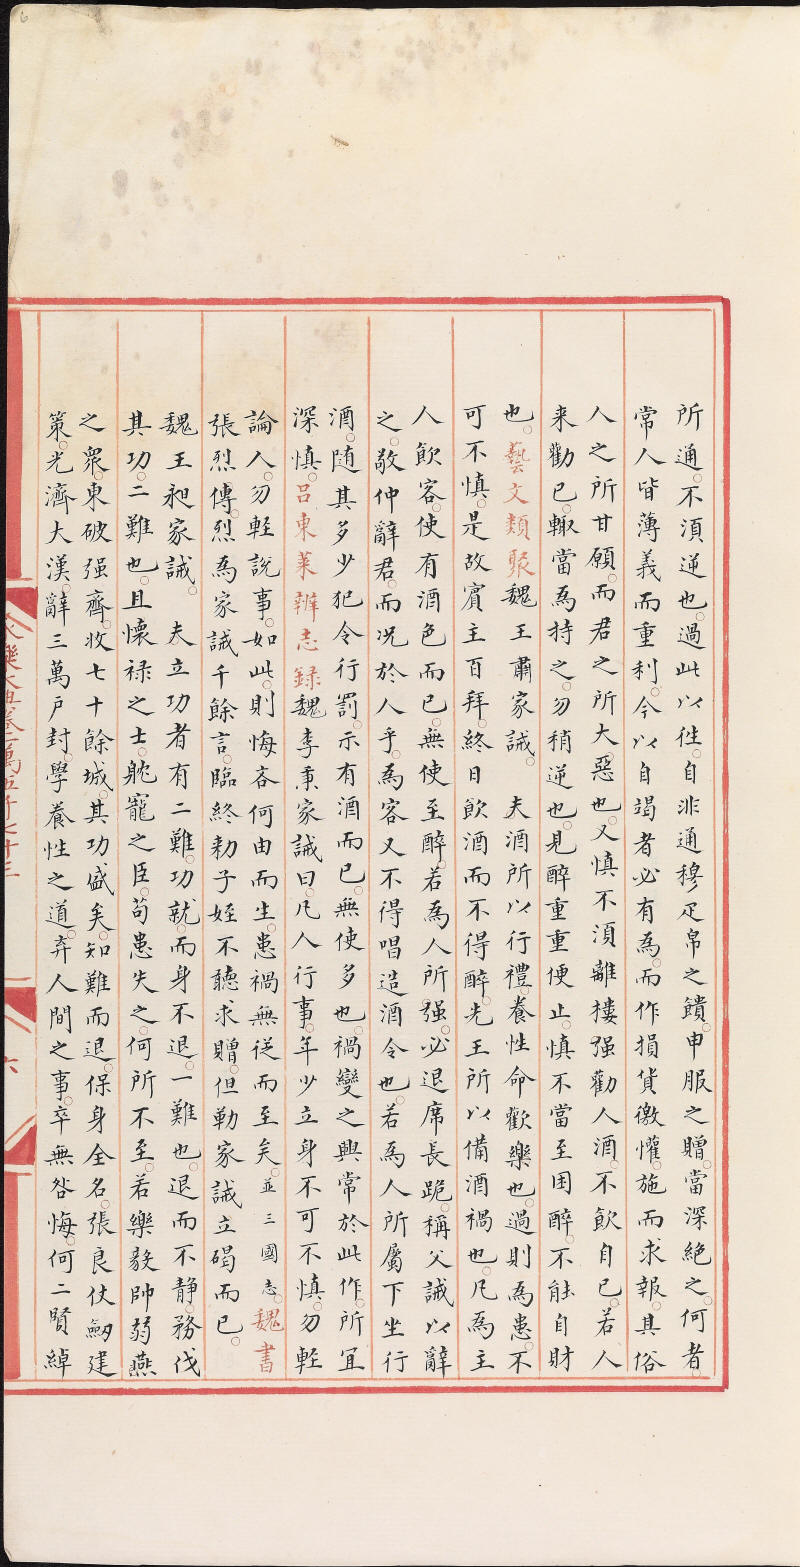 所通。不湏逆也。過此以徃。自非通穆疋帛之饋。申服之贈。當深絶之。何者。
常人皆薄義而重利。今以自竭者必有為。而作損貨徼懽。施而求報。其俗
人之所甘願。而君之所大惡也。又慎不湏離樓强勸人酒。不飲自已。若人
来勸已。輙當為持之。勿稍逆也。見醉重重便止。慎不當至困醉。不能自財
也。藝文類聚魏王肅家誡。 夫酒所以行禮。養性命歡樂也。過則為患。不
可不慎。是故賓主百拜。終日飲酒而不得醉。先王所以備酒禍也。凡為主
人飲客。使有酒色而已。無使至醉。若為人所强。必退席長跪。稱父誡以辭
之。敬仲辭君。而况於人乎。為客又不得唱造酒令也。若為人所屬下坐行
酒。随其多少犯令行罰。示有酒而已。無使多也。禍變之興常於此作。所宜
深慎。吕東萊辨志録魏李秉家誡曰。凡人行事。年少立身不可不慎。勿輕
論人。勿輕說事。如此。則悔吝何由而生。患禍無從而至矣。並三國志。魏書
張烈傳。烈為家誡千餘言。臨終勑子姪不聽求贈。但勒家誡立碣而已。
魏王昶家誡。 夫立功者有二難。功就。而身不退。一難也。退而不静。務伐
其功。二難也。且懷禄之士。躭寵之臣。苟患失之。何所不至。若樂毅帥弱燕
之衆。東破强齊。收七十餘城。其功盛矣。知難而退。保身全名。張良仗劒建
策。光濟大漢。辭三萬戸封。學養性之道。弃人間之事。卒無咎悔。何二賢綽
六